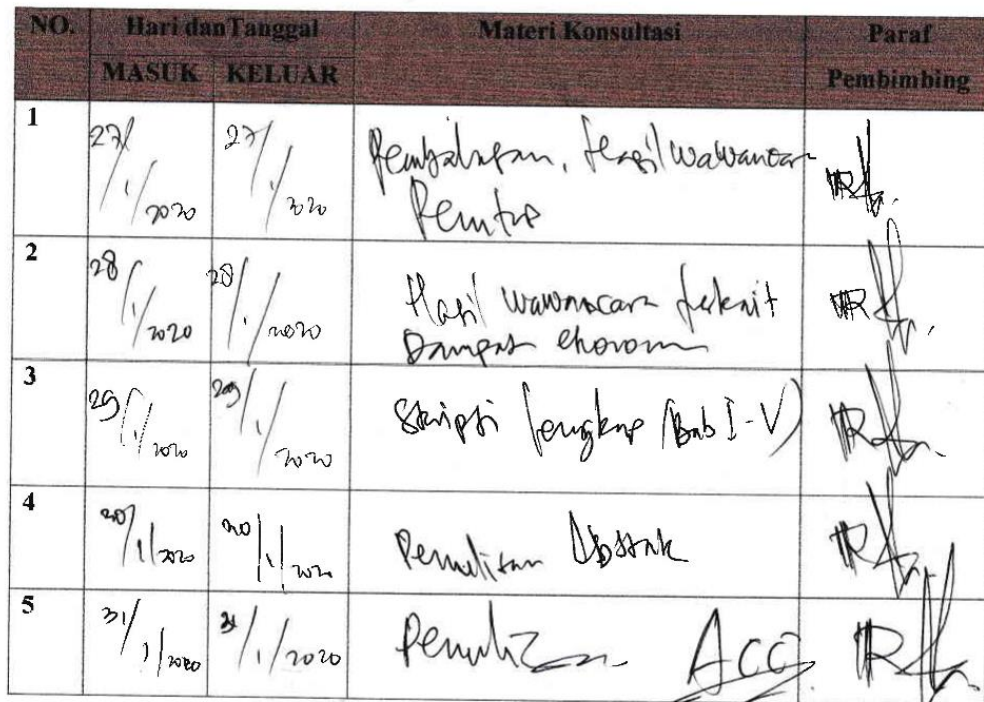 NO. Hari dan Tanggal Materi Konsultasi Paraf
MASUK KELUAR Pembimbing
1 27/1/2020 27/1/2020 Pembahasan, Hasil wawancara
Penutup
2 28/1/2020 28/1/2020 Hasil wawancara terkait
Dampak ekonomi
3 29/1/2020 29/1/2020 Skripsi lengkap (Bab I-V)
4 /1/2020 /1/2020 Penulisan Abstrak
5 31/1/2020 31/1/2020 Penulisan ACC